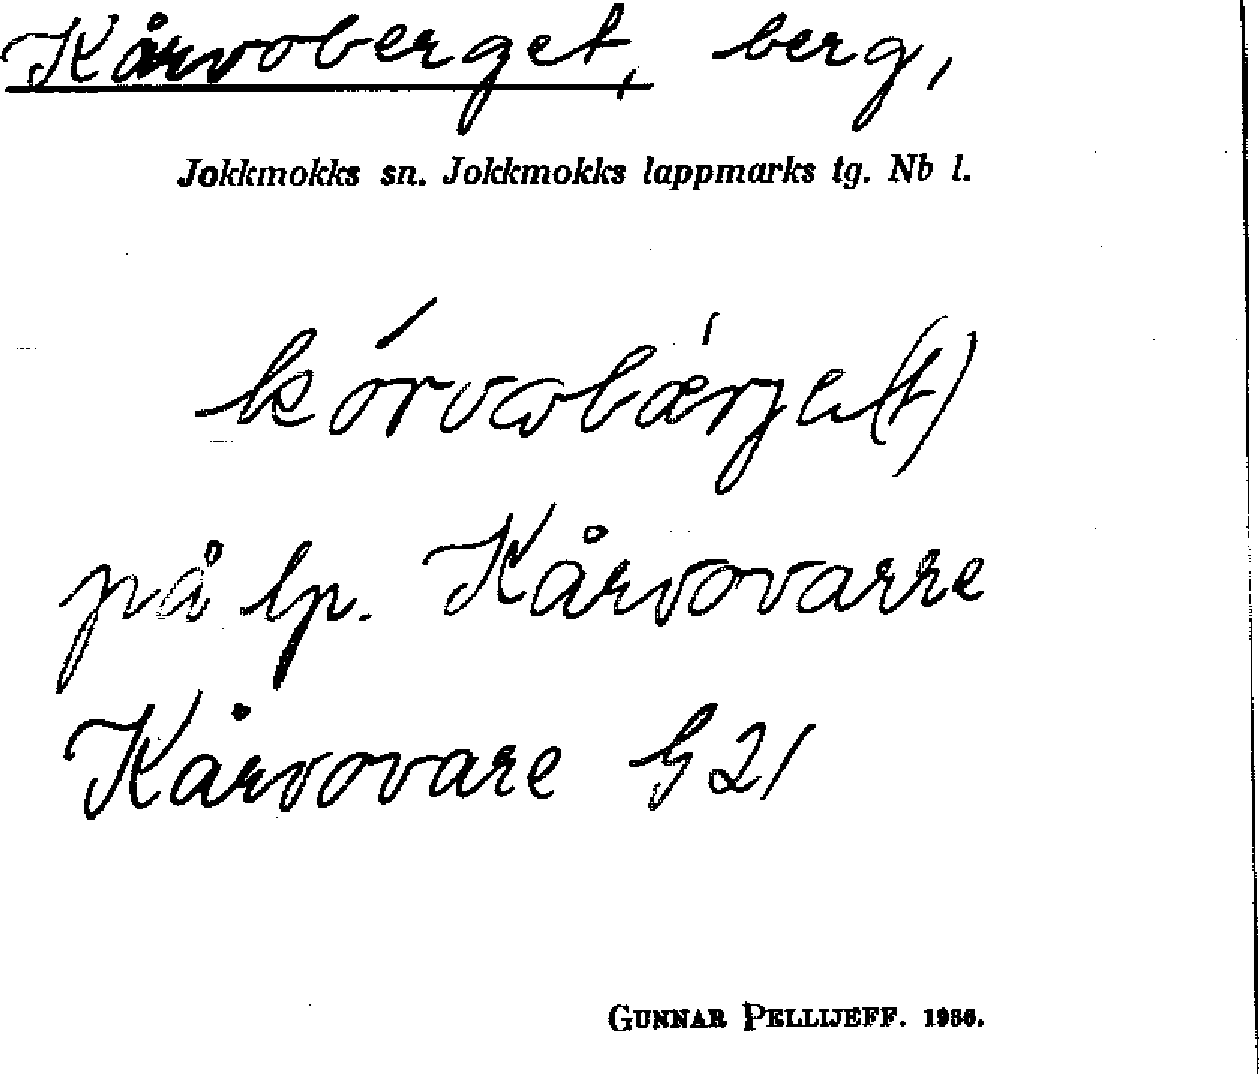 Kårvoberget, berg,
Jokkmokks sn. Jokkmokks lappmarks tg. Nb l.
på lp. Kårvovarre
Kårvovare G 21
GUNNAR PELLIJEFF.